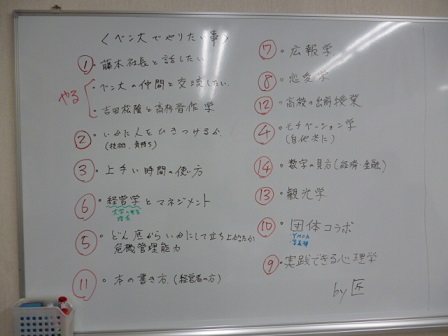 〈ベン大でやりたい事〉
① ・藤本社長と話したい
やる
・ベン大の仲間と交流したい
・吉田松陰と高杉晋作学
② ・いかに人をひきつけるか
③ ・上手い時間の使い方
⑥ ・経営学とマネジメント
⑤ ・どん底からいかにして立ち上がったか
危機管理能力
⑪ ・本の書き方(経営者の方)
⑦ ・広報学
⑧ ・恋愛学
⑫ ・高校の出前授業
④ ・モチベーション学
(自他共に)
⑭ ・数字の見方(経済・金融)
⑬ ・観光学
⑩ ・団体コラボ
YMCA
⑨ ・実践できる心理学
by 匠